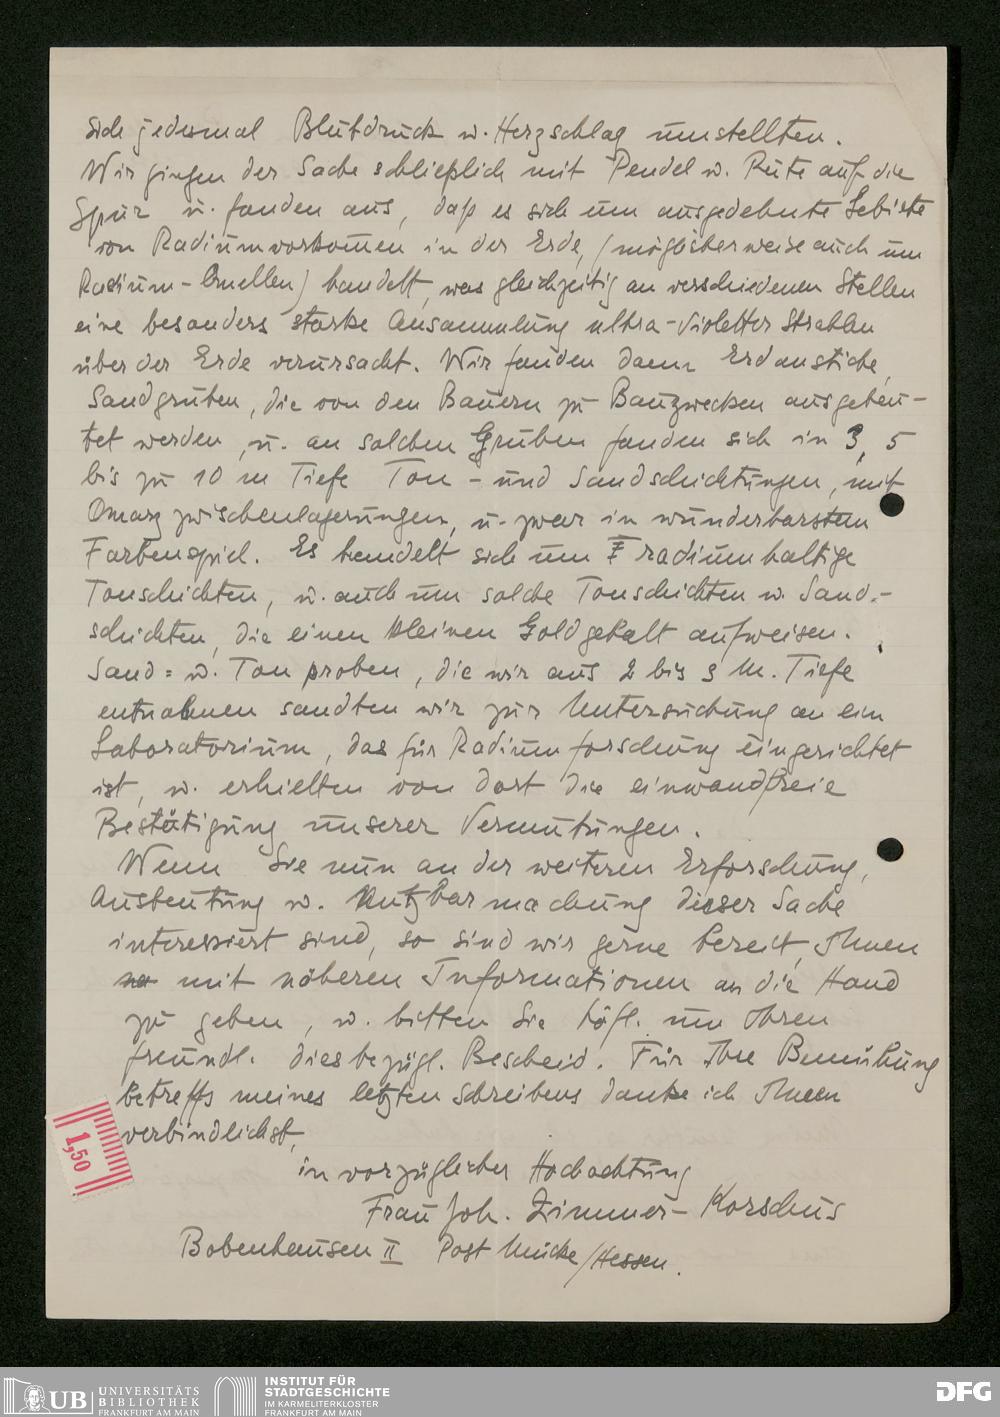 sich jedesmal Blutdruck u. Herzschlag umstellten.
Wir gingen der Sache schließlich mit Pendel u. Rute auf die
Spur u. fanden aus, daß es sich um ausgedehnte Gebiete
von Radiumvorkommen in der Erde, (möglicherweise auch um
Radium-Quellen) handelt, was gleichzeitig an verschiedenen Stellen
eine besonders starke Ansammlung ultra-violetter Strahlen
über der Erde verursacht. Wir fanden dann Erdanstiche,
Sandgruben, die von den Bauern zu Bauzwecken ausgebeu-
tet werden, u. an solchen Gruben fanden sich in 3, 5
bis zu 10 m Tiefe Ton- und Sandschichtungen, mit
Quarzzwischenlagerungen, u. zwar in wunderbarstem
Farbenspiel. Es handelt sich um radiumhaltige
Tonschichten, u. auch um solche Tonschichten u. Sand-
schichten, die einen kleinen Goldgehalt aufweisen.
Sand= u. Tonproben, die wir aus 2 bis 3 m. Tiefe
entnahmen sandten wir zur Untersuchung an ein
Laboratorium, das für Radiumforschung eingerichtet
ist, u. erhielten von dort die einwandfreie
Bestätigung unserer Vermutungen.
Wenn Sie nun an der weiteren Erforschung,
Ausbeutung u. Nutzbarmachung dieser Sache
interessiert sind, so sind wir gerne bereit, Ihnen
mit näheren Informationen an die Hand
zu geben, u. bitten Sie höfl. um Ihren
freundl. diesbezügl. Bescheid. Für Ihre Bemühung
betreffs meines letzten Schreibens danke ich Ihnen
verbindlichst,
in vorzüglicher Hochachtung
Frau Joh. Zimmer-Korschus
Bobenhausen II Post Mücke/Hessen.
1,50
UB UNIVERSITÄTS
BIBLIOTHEK
FRANKFURT AM MAIN
INSTITUT FÜR
STADTGESCHICHTE
IM KARMELITERKLOSTER
FRANKFURT AM MAIN
DFG